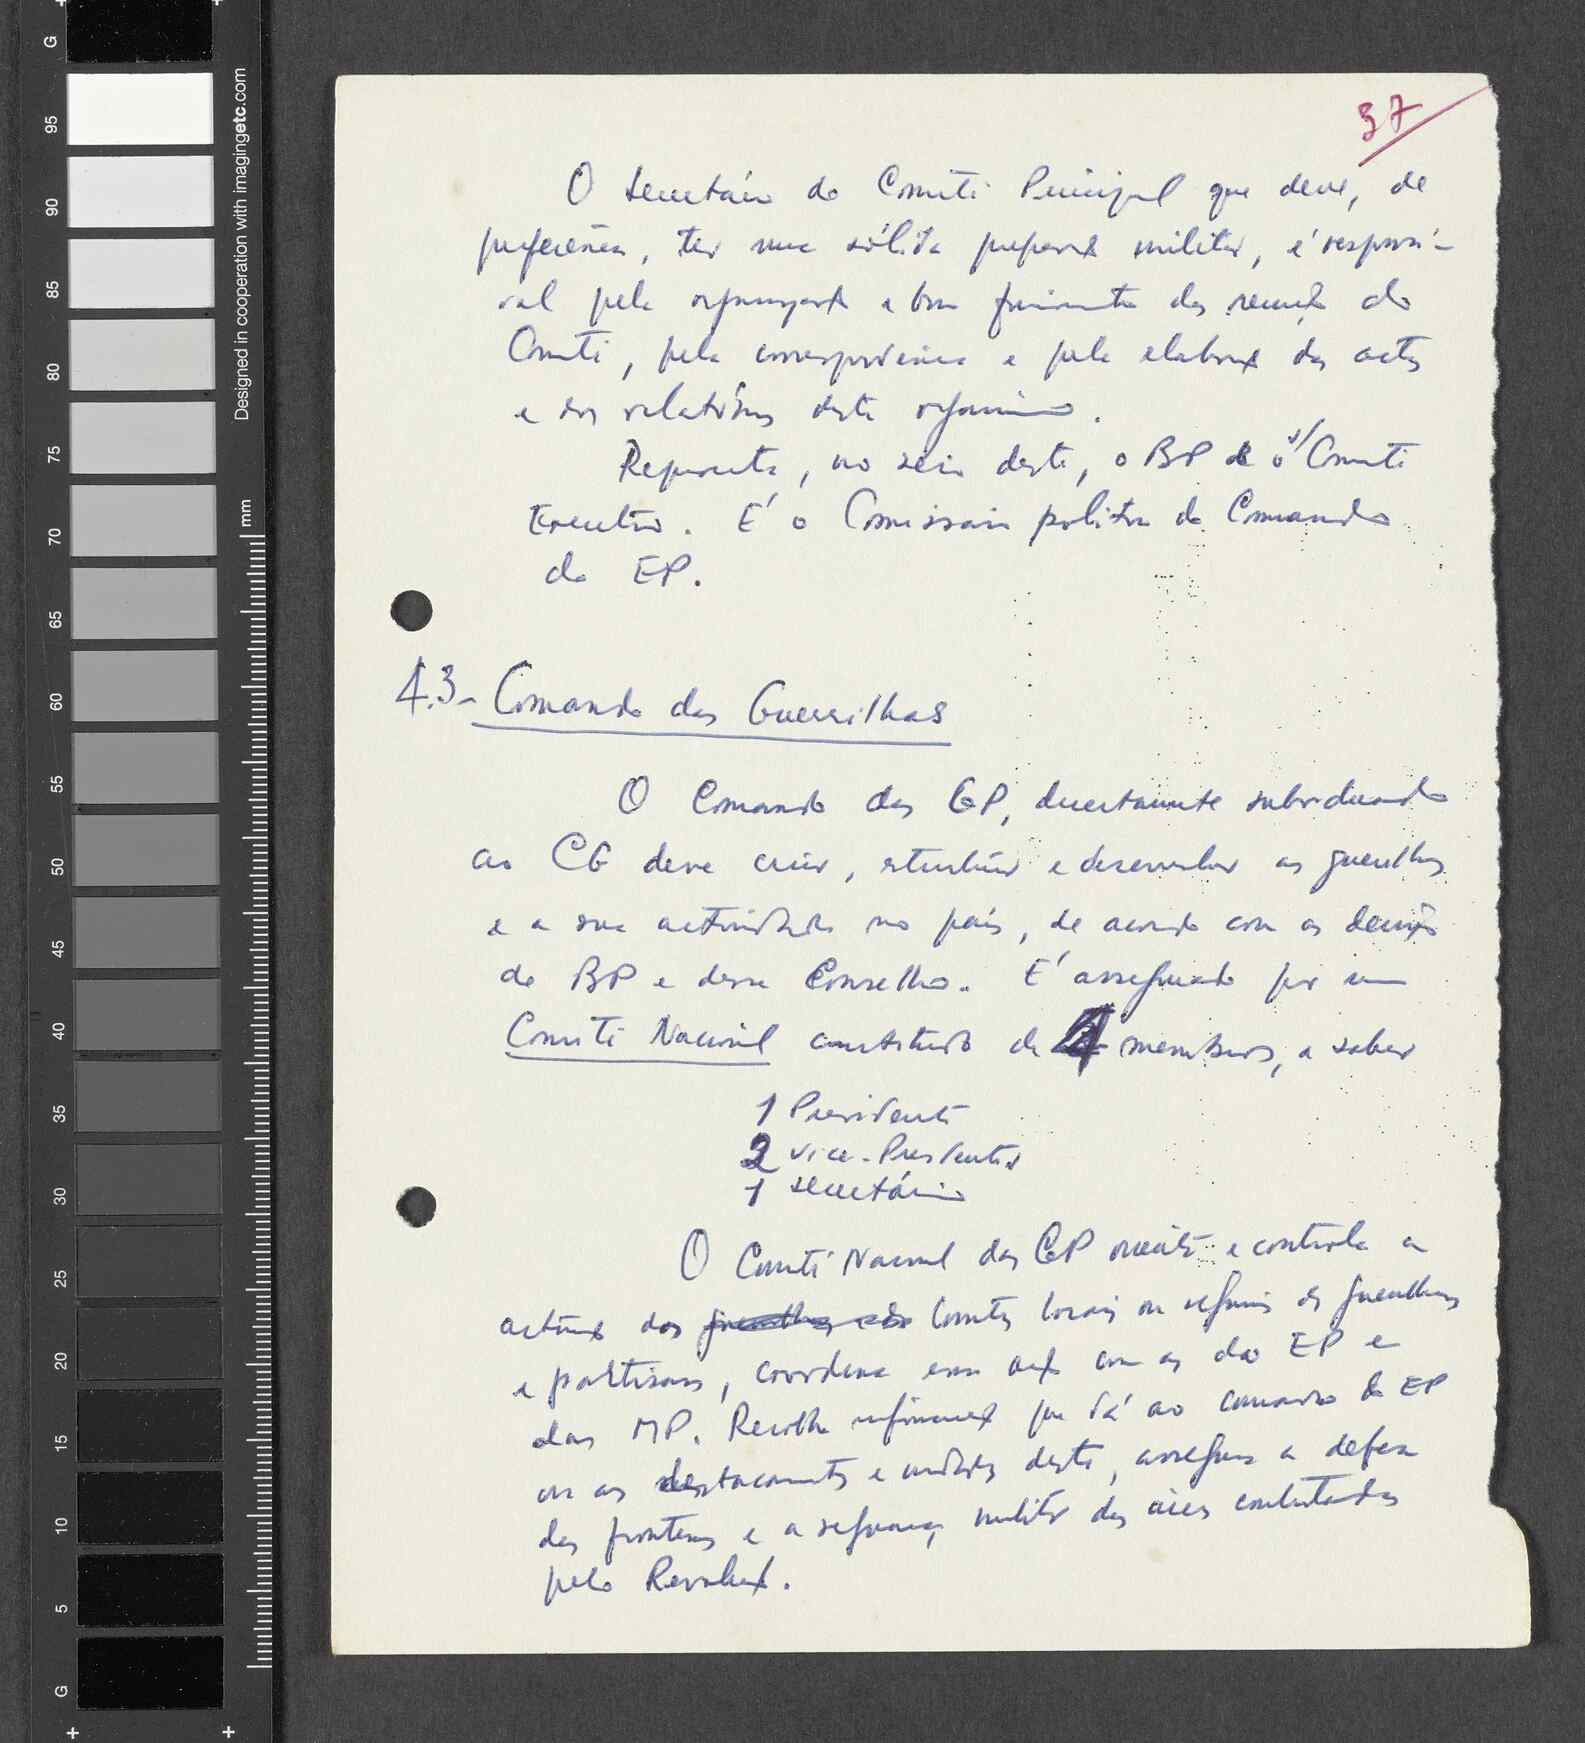 37
O Secretário do Comité Principal que deve, de
preferência, ter uma sólida preparaç militar, é responsá-
vel pela organizaçã e bom funcionamento das reuniões do
Comité, pela correspondência e pela elaboraç das actas
e dos relatórios deste organismo.
Representa, no seio deste, o BP e o s/ Comité
Executivo. É o Comissário político do Comando
do EP.
4.3- Comando das Guerrilhas
O Comando das GP, directamente subordinado
ao CG deve criar, estruturar e desenvolver as guerrilhas
e a sua actividade no país, de acordo com as decisões
do BP e desse Conselho. É assegurado por um
Comité Nacional constituído de 4 membros, a saber
1 Presidente
2 Vice-Presidentes
1 Secretário
O Comité Nacional das GP orienta e controla a
activid dos Comités locais ou regionais de guerrilhas
e partisans, coordena essa acç com as do EP e
das MP. Recolhe informaç que dá ao comando do EP
ou aos destacamentos e unidades deste, assegura a defesa
das fronteiras e a segurança militar das áreas controladas
pela Revoluç.
Designed in cooperation with imagingetc.com
mm
G
95
90
85
80
75
70
65
60
55
50
45
40
35
30
25
20
15
10
5
G